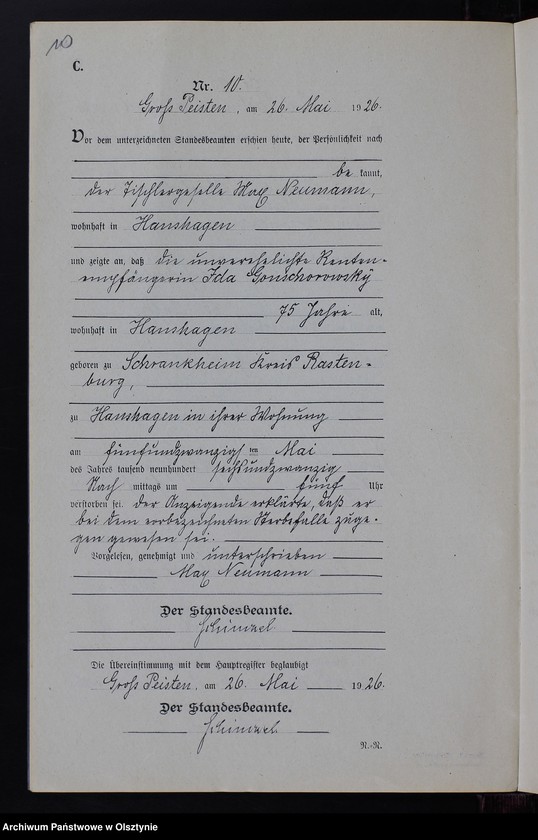 10
C.
Nr. 10.
Groß Peisten, am 26. Mai 1926.
Vor dem unterzeichneten Standesbeamten erschien heute, der Persönlichkeit nach
be kannt,
der Tischlergeselle Max Neumann,
wohnhaft in Hanshagen
und zeigte an, daß die unverehelichte Renten-
empfängerin Ida Gonschorowsky
75 Jahre alt,
wohnhaft in Hanshagen
geboren zu Schrankheim Kreis Rasten-
burg,
zu Hanshagen in ihrer Wohnung
am fünfundzwanzigsten Mai
des Jahres tausend neunhundert sechsundzwanzig
Nach mittags um fünf Uhr
verstorben sei. Der Anzeigende erklärte, daß er
bei dem vorbezeichneten Sterbefalle zuge-
gen gewesen sei.
Vorgelesen, genehmigt und unterschrieben
Max Neumann
Der Standesbeamte.
Schinzel
Die Übereinstimmung mit dem Hauptregister beglaubigt
Groß Peisten, am 26. Mai 1926.
Der Standesbeamte.
Schinzel
R.-R.
Archiwum Państwowe w Olsztynie